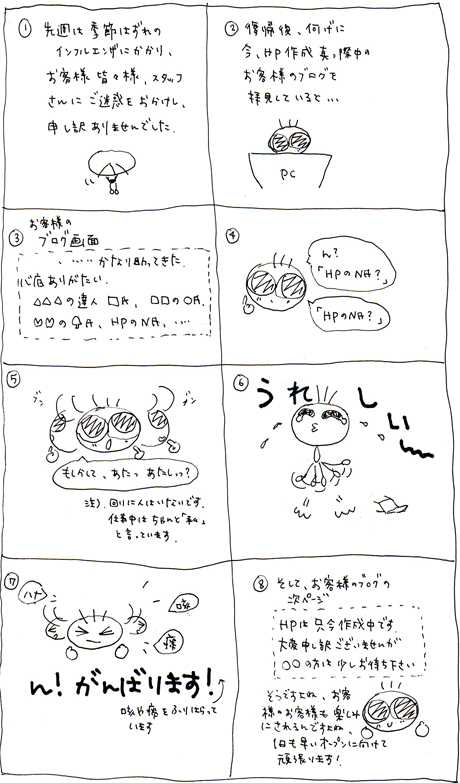 ①
先週は季節はずれの
インフルエンザにかかり、
お客様皆々様、スタッフ
さんにご迷惑をおかけし、
申し訳ありませんでした.
②
復帰後、何げに
今、HP作成真っ際中の
お客様のブログを
拝見していると…
PC
③
お客様の
ブログ画面
・・……かなり助ってきた.
心底ありがたい.
△△△の達人 □A, □□の○A.
♡♡の♤A, HPのNA, ….
④
ん?
「HPのNA?」
「HPのNA?」
⑤
ブン
ブン
もしかして、あたっ あたしっっ?
注). 回りに人はいないです.
仕事中はちゃんと「私」
と言っています.
⑥
うれしいー
⑦
ハナ
咳
痰
ん!がんばります!
咳や痰をふりはらって
います
⑧
そして、お客様のブログの
次ページ
HPは只今作成中です.
大変申し訳ございませんが
○○の方は少しお待ち下さい
そうですよね、お客
様のお客様も楽しみ
にされるんですよね、
1日も早いオープンに向けて
頑張ります!